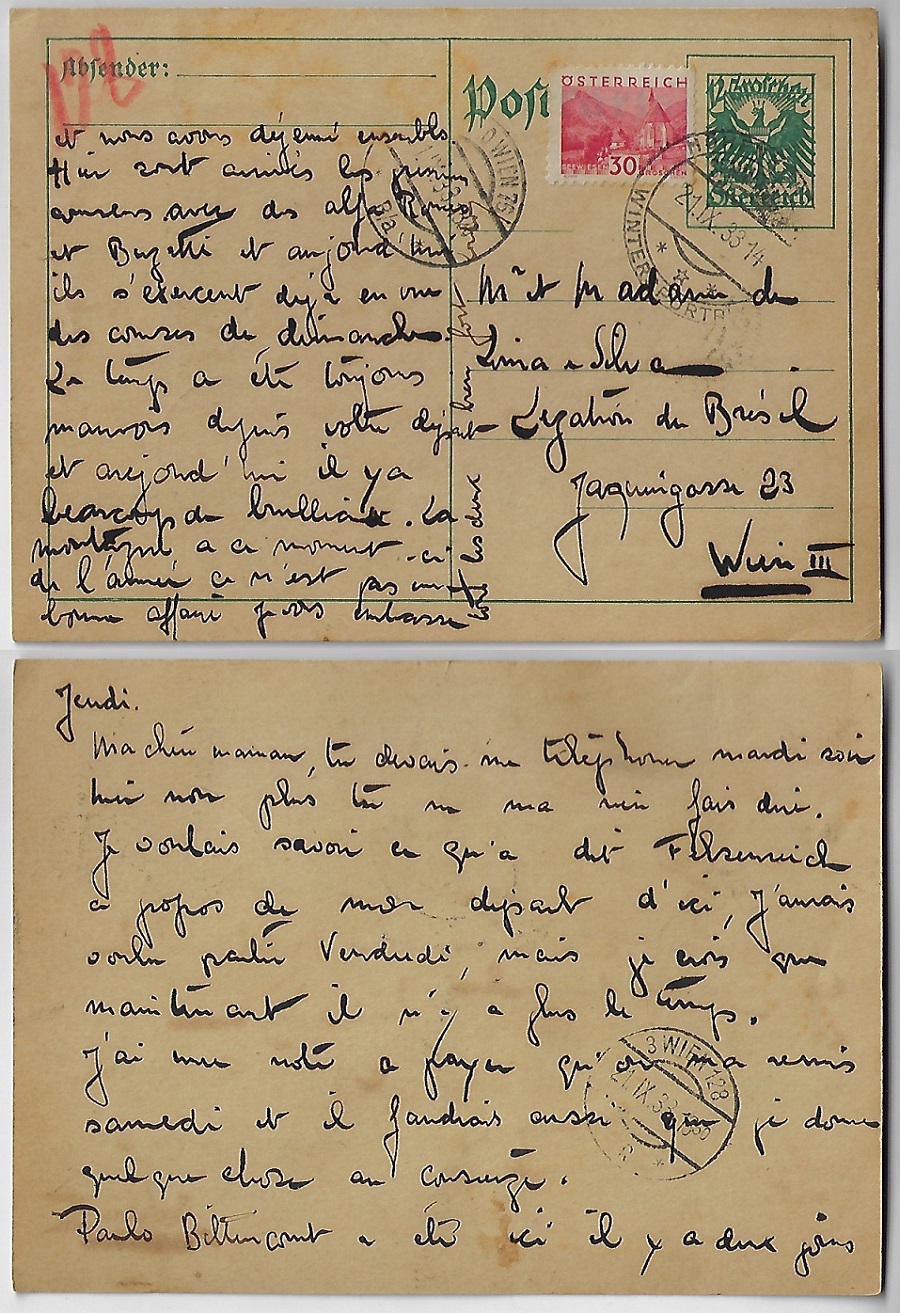 Absender:
172
et nous avons déjeuné ensemble
Hier sont arrivés les premiers
coureurs avec des alfa Romeo
et Bugatti et aujourd'hui
ils s'exercent déjà en vue
des courses de dimanche.
Le temps a été toujours
mauvais depuis votre départ
et aujourd'hui il y a
beaucoup de brouillard. La
montagne a ce moment-ci
de l'année ce n'est pas une
bonne affaire je vous embrasse
tous les deux bien fort
Post
ÖSTERREICH
30
GROSCHEN
12 Groschen
Österreich
WIEN 75
21.IX.33-14
WINTERSPORT
Mr et Madame de
Lima e Silva
Légation du Brésil
Jaquingasse 23
Wien III
Jeudi.
Ma chère maman, tu devais me téléphoner mardi soir
hier non plus tu ne m'a rien fais dire.
Je voulais savoir ce qu'a dit Felsenreich
a propos de mon départ d'ici, J'aurais
voulu partir Vendredi, mais je crois que
maintenant il n'y a plus le temps.
J'ai une note a payer qu'on m'a remis
samedi et il faudrais aussi que je donne
quelque chose au concierge.
3 WIEN 128
21.IX.33
Paulo Bittencourt a été ici il y a deux jours